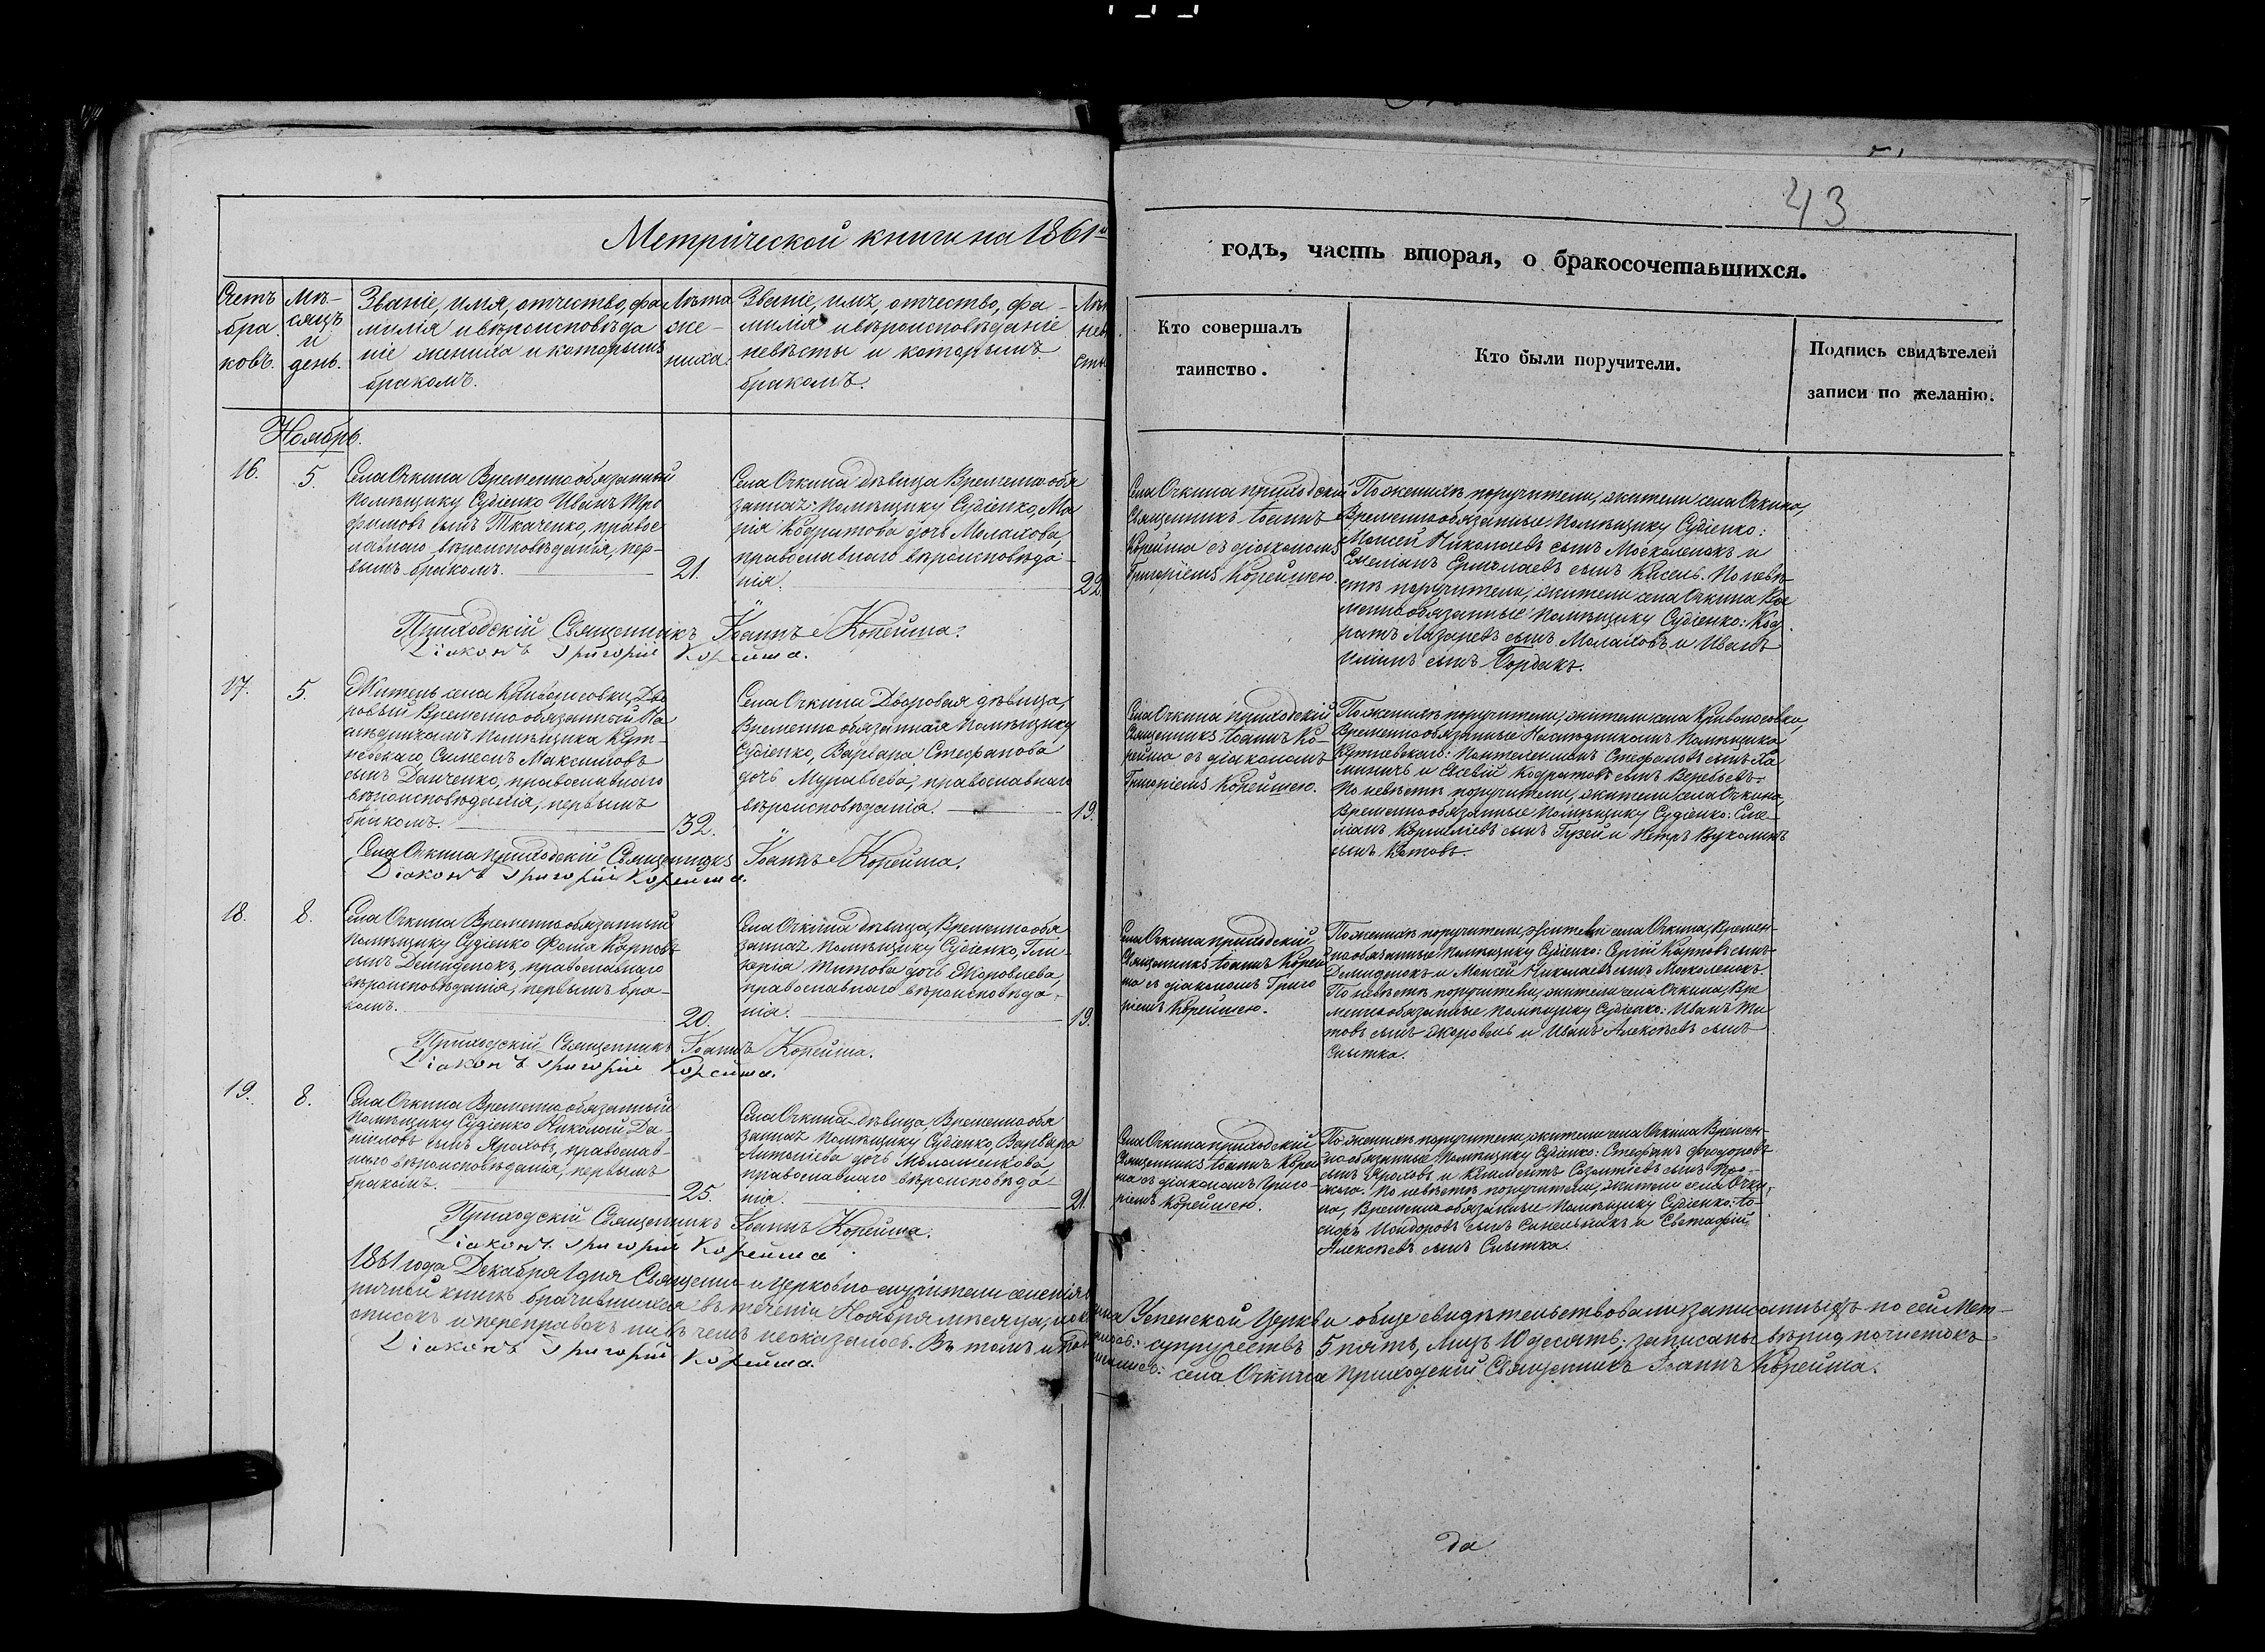 43
Метрической книги на 1861й
годъ, часть вторая, о бракосочетавшихся.
Счетъ браковъ.
Мѣсяцъ и день.
Званіе, имя, отчество, фамилія и вѣроисповѣданіе жениха и которымъ бракомъ.
Лѣта жениха.
Званіе, имя, отчество, фамилія и вѣроисповѣданіе невѣсты и которымъ бракомъ.
Кто совершалъ
таинство.
Кто были поручители.
Подпись свидѣтелей
записи по желанію.
Ноябрь.
16.
5.
Села Очкина Временнообязанный
Помѣщику Судіенко Иванъ Тро
фимовъ сынъ Ткаченко, правос
лавнаго вѣроисповѣданія, пер-
вымъ бракомъ.
21.
Села Очкина дѣвица Временнообя
занная Помѣщику Судіенко, Ма
рія Кодратова дочь Малахова,
православнаго вѣроисповѣда-
нія.
22
Села Очкина приходскій
Священникъ Іоаннъ
Корейша съ діакономъ
Григоріемъ Корейшею.
По женихѣ поручители, жители села Очкина,
Временнообязанные Помѣщику Судіенко:
Моисей Николаевъ сынъ Москаленокъ и
Емеліанъ Ермолаевъ сынъ Кисель. По невѣ-
стѣ поручители, жители села Очкина Вре
меннообязанные Помѣщику Судіенко: Код
ратъ Лазаревъ сынъ Малаховъ и Иванъ
Ильинъ сынъ Бурдакъ.
Приходскій Священникъ Іоаннъ Корейша.
Діаконъ Григорій Корейша.
17.
5.
Житель села Кривоносовки, Дво
ровый Временнообязанный На
слѣдникамъ Помѣщика
Симеонъ Максимовъ
сынъ Данченко, православнаго
вѣроисповѣданія, первымъ
бракомъ.
32.
Села Очкина Дворовая дѣвица,
Временнообязанная Помѣщику
Судіенко, Варвара Стефанова
дочь Муравьева, православнаго
вѣроисповѣданія.
19.
Села Очкина приходскій
Священникъ Іоаннъ Ко-
рейша съ діакономъ
Григоріемъ Корейшею.
По женихѣ поручители, жители села Кривоносовки,
Временнообязанные Наслѣдникамъ Помѣщика
Пантелеимонъ Стефановъ сынъ
и Евсевій Кодратовъ сынъ Веревьевъ.
По невѣстѣ поручители, жители села Очкина,
Временнообязанные Помѣщику Судіенко: Еме-
ліанъ Корниліевъ сынъ Гузей и Петръ Вуколинъ
сынъ Котовъ.
Села Очкина приходскій Священникъ Іоаннъ Корейша.
Діаконъ Григорій Корейша.
18.
8.
Села Очкина Временнообязанный
Помѣщику Судіенко Фома Карповъ
сынъ Демиденокъ, православнаго
вѣроисповѣданія, первымъ бра-
комъ.
20.
Села Очкина дѣвица, Временнообя
занная Помѣщику Судіенко, Гли-
керія Титова дочь Жоровлева,
православнаго вѣроисповѣда-
нія.
19.
Села Очкина приходскій
Священникъ Іоаннъ Корей
ша съ діакономъ Григо
ріемъ Корейшею.
По женихѣ поручители, жители села Очкина, Времен-
нообязанные Помѣщику Судіенко: Сергій Карповъ сынъ
Демиденокъ и Моисей Николаевъ сынъ Москаленокъ.
По невѣстѣ поручители, жители села Очкина, Вре
меннообязанные Помѣщику Судіенко: Иванъ Ти-
товъ сынъ Жоровель и Иванъ Алексѣевъ сынъ
Смытка.
Приходскій Священникъ Іоаннъ Корейша.
Діаконъ Григорій Корейша.
19.
8.
Села Очкина Временнообязанный
Помѣщику Судіенко Николай Да-
ниловъ сынъ Яроховъ, православ-
наго вѣроисповѣданія, первымъ
бракомъ.
25.
Села Очкина дѣвица, Временнообя
занная Помѣщику Судіенко, Варвара
Антоніева дочь Малашенкова,
православнаго вѣроисповѣда
нія.
21.
Села Очкина приходскій
Священникъ Іоаннъ Корей
ша съ діакономъ Григо-
ріемъ Корейшею.
По женихѣ поручители, жители села Очкина Времен-
нообязанные Помѣщику Судіенко: Стефанъ Феодоровъ
сынъ Ярохов и Климентъ Созонтіевъ сынъ
По невѣстѣ поручители, жители села Очки-
на, Временнообязанные Помѣщику Судіенко: Іо-
сифъ Исидоровъ сынъ Синельникъ и
Алексѣевъ сынъ Смытка.
Приходскій Священникъ Іоаннъ Корейша.
Діаконъ Григорій Корейша.
1861 года Декабря 1 дня Священно и церковно служители
Успенской Церкви обще свидѣтельствовали записанныхъ по сей Мет-
ричной книгѣ брачившихся въ теченіи Ноября мѣсяца,
супружествъ 5 пять, лицъ 10 десять; записаны вѣрно почистокъ
описокъ и переправокъ ни въ чемъ неоказалось. Въ томъ и
села Очкина Приходскій Священникъ Іоаннъ Корейша.
Діаконъ Григорій Корейша
да